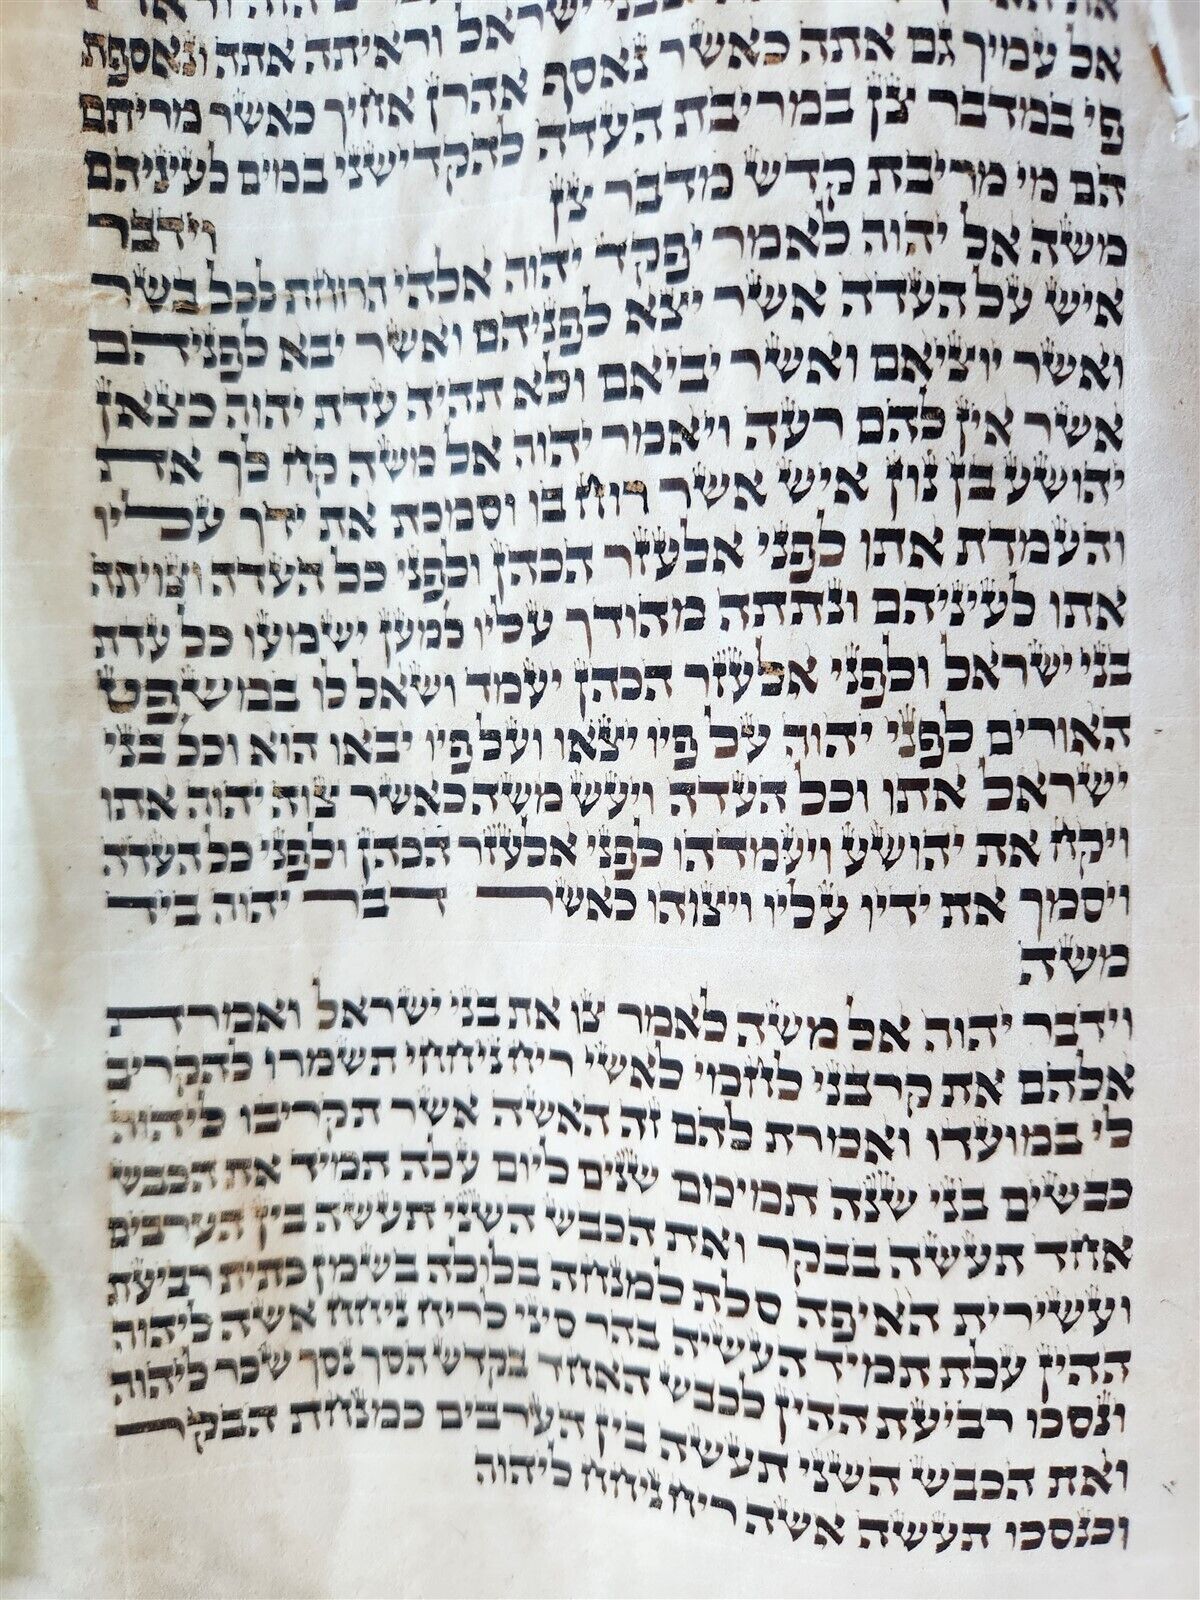 ישראל וראיתה אתה ונאספת
אל עמיך גם אתה כאשר נאסף אהרן אחיך כאשר מריתם
פי במדבר צן במריבת העדה להקדישני במים לעיניהם
הם מי מריבת קדש מדבר צן וידבר
משה אל יהוה לאמר יפקד יהוה אלהי הרוחת לכל בשר
איש על העדה אשר יצא לפניהם ואשר יבא לפניהם
ואשר יוציאם ואשר יביאם ולא תהיה עדת יהוה כצאן
אשר אין להם רעה ויאמר יהוה אל משה קח לך את
יהושע בן נון איש אשר רוח בו וסמכת את ידך עליו
והעמדת אתו לפני אלעזר הכהן ולפני כל העדה וצויתה
אתו לעיניהם ונתתה מהודך עליו למען ישמעו כל עדת
בני ישראל ולפני אלעזר הכהן יעמד ושאל לו במשפט
האורים לפני יהוה על פיו יצאו ועל פיו יבאו הוא וכל בני
ישראל אתו וכל העדה ויעש משה כאשר צוה יהוה אתו
ויקח את יהושע ויעמדהו לפני אלעזר הכהן ולפני כל העדה
ויסמך את ידיו עליו ויצוהו כאשר דבר יהוה ביד
משה
וידבר יהוה אל משה לאמר צו את בני ישראל ואמרת
אלהם את קרבני לחמי לאשי ריח ניחחי תשמרו להקריב
לי במועדו ואמרת להם זה האשה אשר תקריבו ליהוה
כבשים בני שנה תמימם שנים ליום עלה תמיד את הכבש
אחד תעשה בבקר ואת הכבש השני תעשה בין הערבים
ועשירית האיפה סלת למנחה בלולה בשמן כתית רביעת
ההין עלת תמיד העשיה בהר סיני לריח ניחח אשה ליהוה
ונסכו רביעת ההין לכבש האחד בקדש הסך נסך שכר ליהוה
ואת הכבש השני תעשה בין הערבים כמנחת הבקר
וכנסכו תעשה אשה ריח ניחח ליהוה